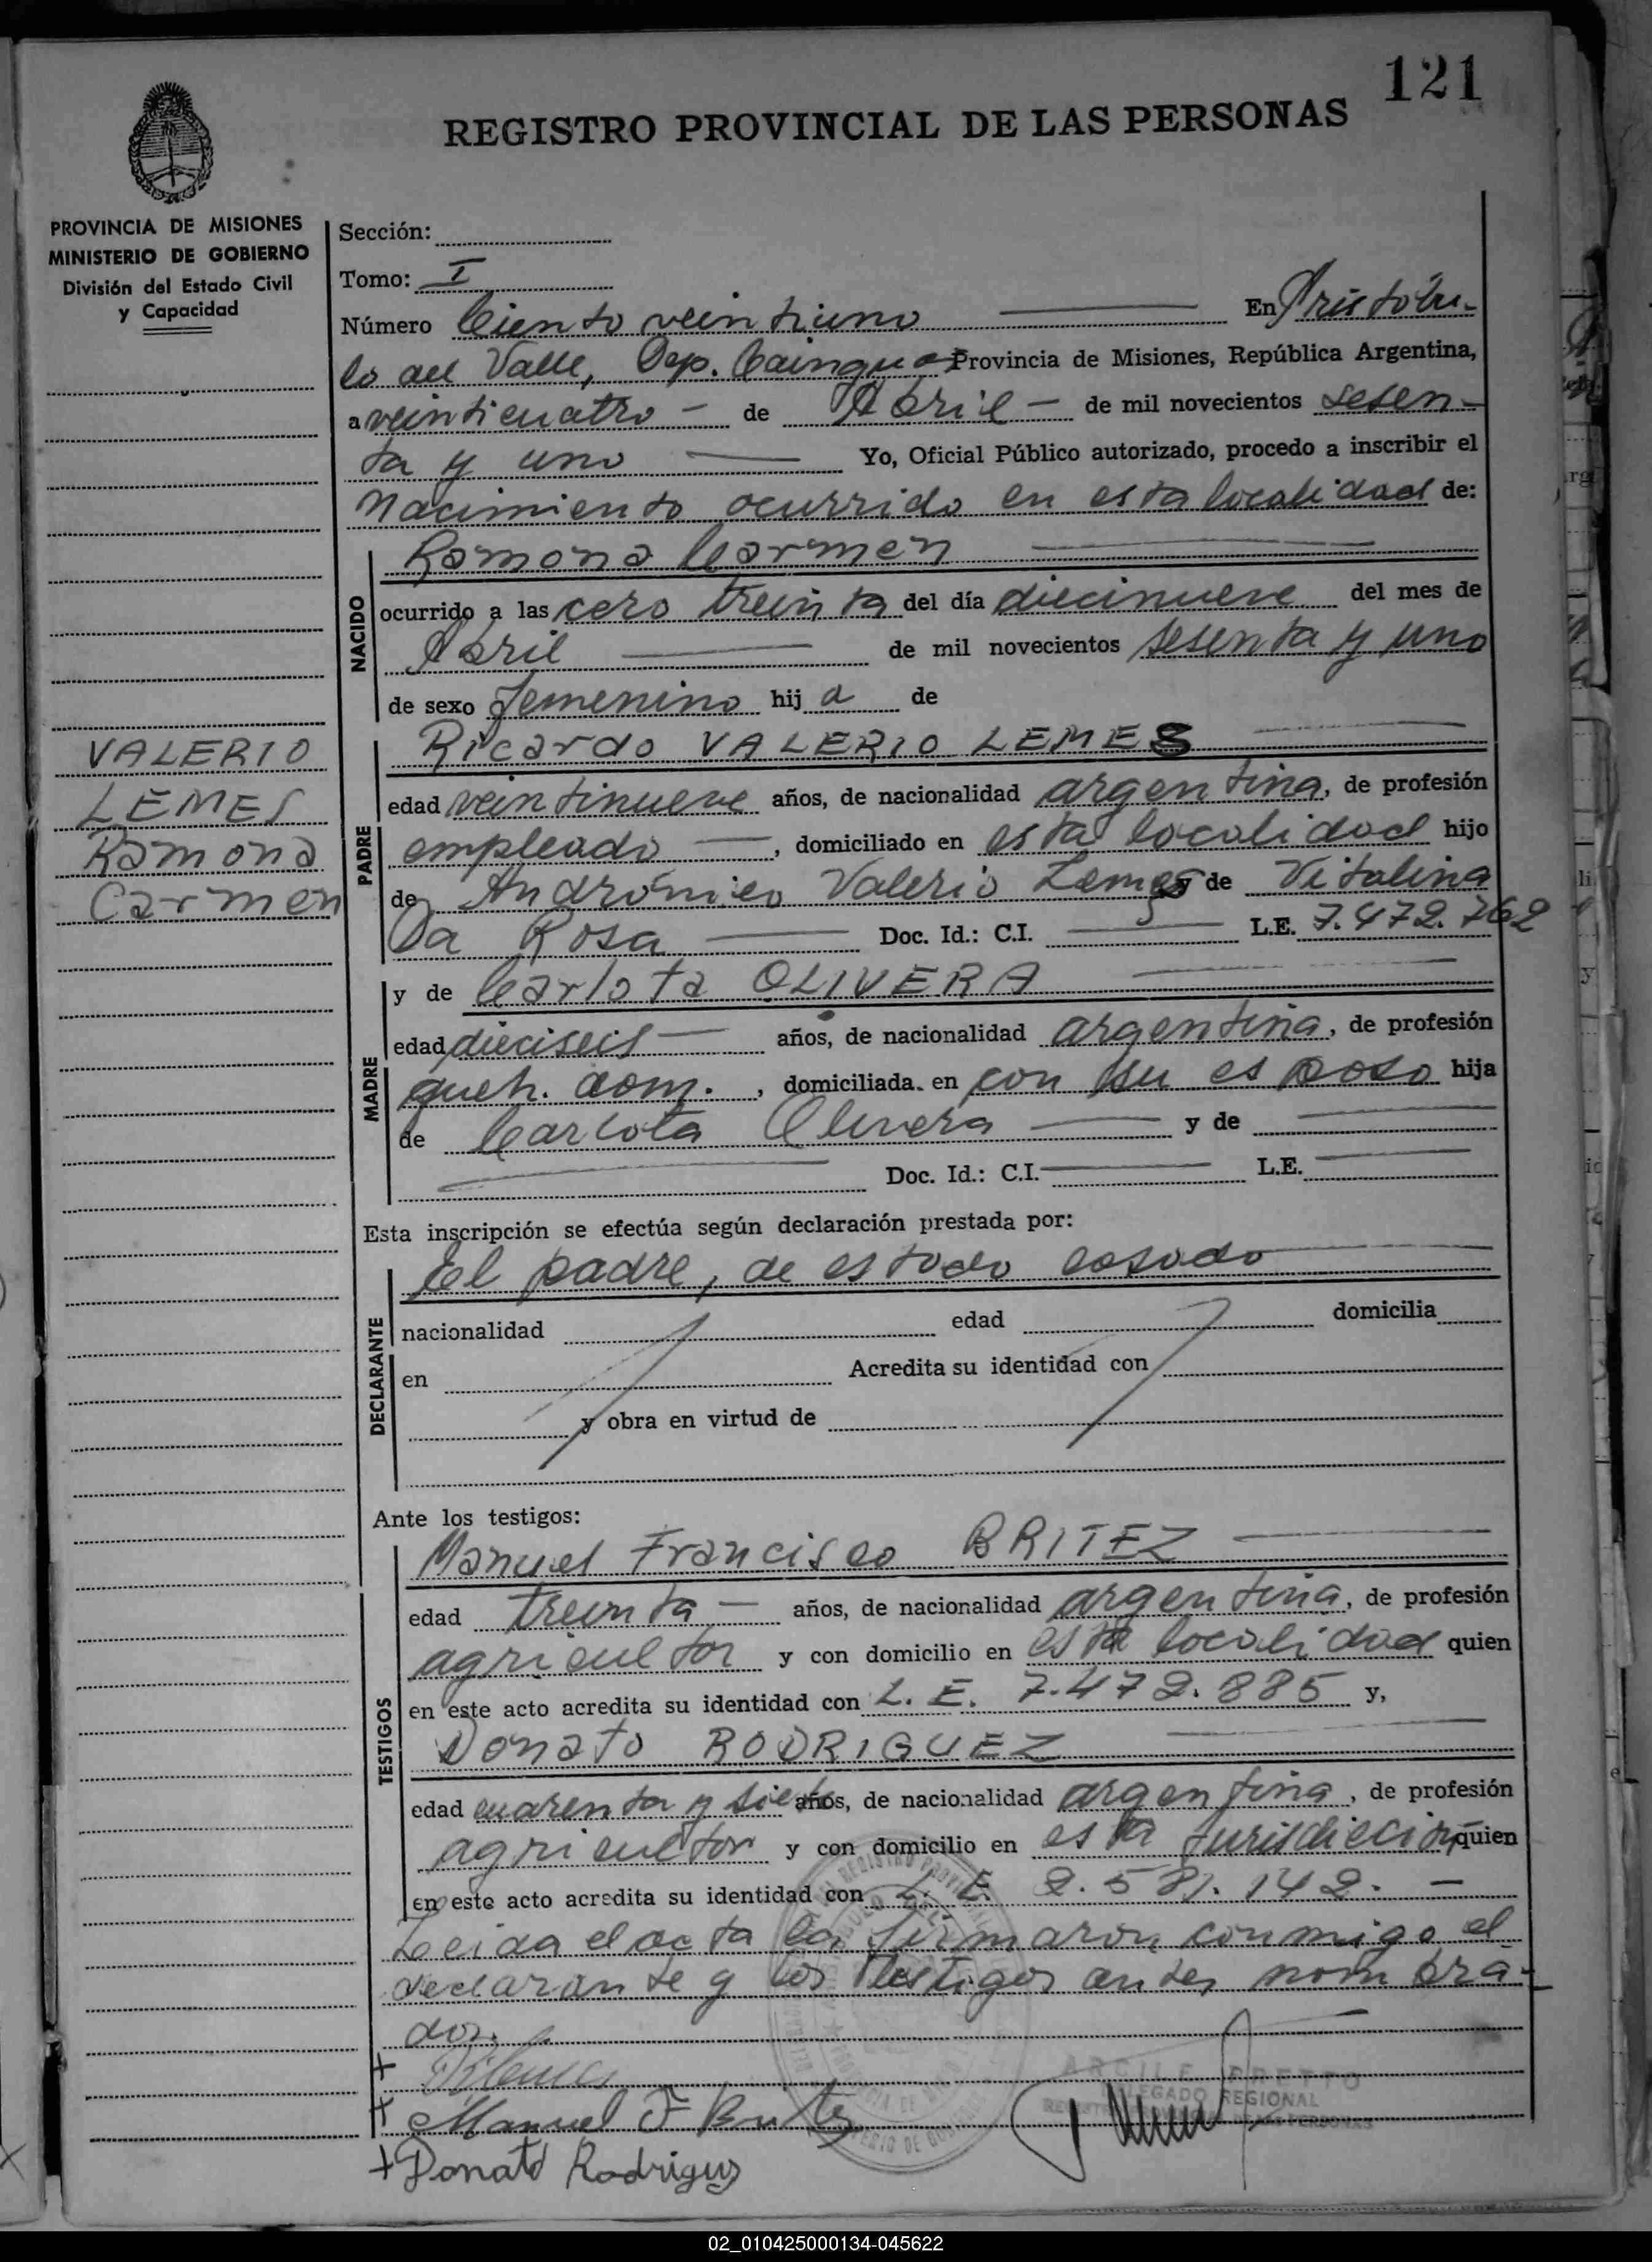 121
REGISTRO PROVINCIAL DE LAS PERSONAS
PROVINCIA DE MISIONES
MINISTERIO DE GOBIERNO
División del Estado Civil
y Capacidad
VALERIO
LEMES
Ramona
Carmen
Sección:
Tomo: I
Número Ciento veintiuno En Aristóbu-
lo del Valle, Dep. Cainguas Provincia de Misiones, República Argentina,
a veinticuatro - de Abril - de mil novecientos sesen-
ta y uno Yo, Oficial Público autorizado, procedo a inscribir el
nacimiento ocurrido en esta localidad de:
NACIDO
Ramona Carmen
ocurrido a las cero treinta del día diecinueve del mes de
Abril de mil novecientos sesenta y uno
de sexo femenino hij a de
PADRE
Ricardo VALERIO LEMES
edad veintinueve años, de nacionalidad argentina, de profesión
empleado —, domiciliado en esta localidad hijo
de Andrónico Valerio Lemes y de Vitalina
Da Rosa Doc. Id.: C.I. L.E. 7.472.762
MADRE
y de Carlota OLIVERA
edad dieciseis — años, de nacionalidad argentina, de profesión
queh. dom. , domiciliada en con su esposo hija
de Carlota Olivera y de
Doc. Id.: C.I. L.E.
Esta inscripción se efectúa según declaración prestada por:
DECLARANTE
El padre, de estado casado
nacionalidad edad domicilia
en Acredita su identidad con
y obra en virtud de
Ante los testigos:
TESTIGOS
Manuel Francisco BRITEZ
edad treinta — años, de nacionalidad argentina, de profesión
agricultor y con domicilio en esta localidad quien
en este acto acredita su identidad con L. E. 7.472.885 y,
Donato RODRIGUEZ
edad cuarenta y siete años, de nacionalidad argentina, de profesión
agricultor y con domicilio en esta jurisdiccion quien
en este acto acredita su identidad con L. E. 2.581.142. —
Leida el acta la firmaron conmigo el
declarante y los testigos antes nombra-
dos.
Manuel F Britez
+ Donato Rodriguez
DELEGADO REGIONAL
02_010425000134-045622